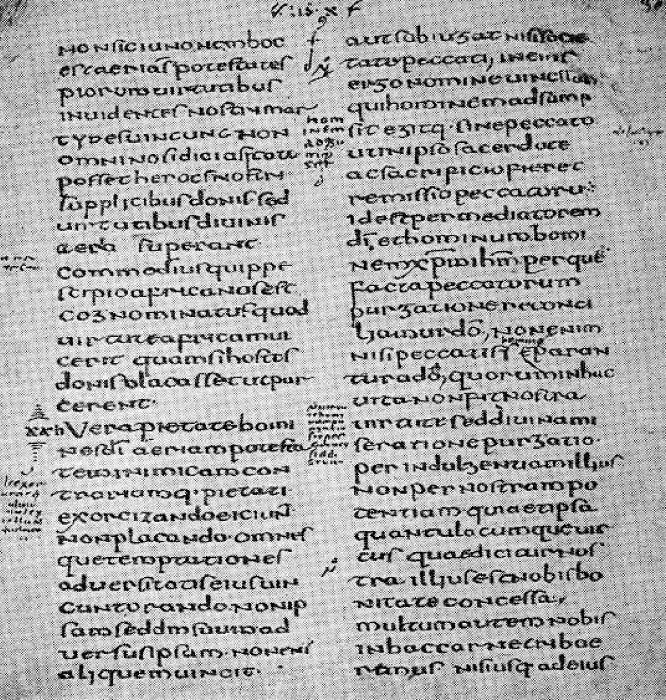 4:15·x f
non si iuno nomen hoc
est aerias potestates
piorum uirtutibus
inuidentes nostri mar
tyres uincunt non
omnino si dici usitate
posset heroes nostri
supplicibus donis sed
uirtutibus diuinis
aera superant·
commodius quippe
scipio africanus est
cognominatus quod
uirtute africam ui
cerit quam si hostes
donis placasset ut par
cerent·
xxii Vera pietate homi
nes dī aeriam potesta
tem inimicam con
trariamq· pietati
exorcizando eiciunt
non placando omnes
que temptationes
aduersitatis eius uin
cunt orando non ip
sam sed dm suum ad
uersus ipsam· non eni
aliquem uincit·
aut subiugat nisi socie
tate peccati, in eius
ergo nomine uincitur
qui hominem adsump
sit egitq· sine peccato
ut in ipso sacerdote
ac sacrificio fieret
remissio peccatoru·
id est per mediatorem
dī, et hominum homi
nem xp̄m ih̄m per que
facta peccatorum
purgatione reconci
liamur dō, non enim
nisi peccatis separan
tur a dō, quorum in hac
uita non fit nostra
uirtute sed diuina mi
seratione purgatio·
per indulgentiam illius
non per nostram po
tentiam quia et ipsa
quantulacumque uir
tus quae dicitur nos
tra illius est nobis bo
nitate concessa,
multum autem nobis
in hac carne tribue
remus nisi usq· ad eius